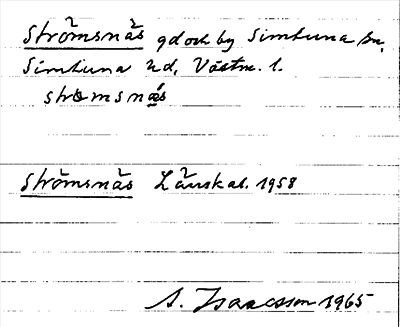 Strömsnäs gd och by Simtuna sn,
Simtuna hd, Västm. l.
strωmsnǽs
Strömsnäs Länskal. 1958
S. Isaacsson 1965